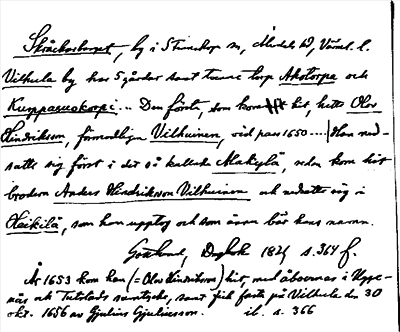 Skräckarberget, by i S Finnskoga sn, Älvdals hd, Värml. l.
Vilhula by har 5 gårdar samt tvenne torp Ahotorpa och
Kumpasuokorpi... Den första, som kom hit, hette Olov
Hindriksson, förmodligen Vilhuinen, vid pass 1650 .... Han ned-
satte sig först i det så kallade Alakylä, sedan kom hit
brodern Anders Hindriksson Vilhuinen och nedsatte sig i
Heikilä, som han upptog och som ännu bär hans namn.
Gottlund, Dagbok 1821 s. 364 f.
År 1653 kom han (= Olov Hindriksson) hit, med åboernas i
och samtycke, samt fick fasta på Vilhula den 30
okt. 1656 av Gjulius Gjuliusson. ib. s. 366